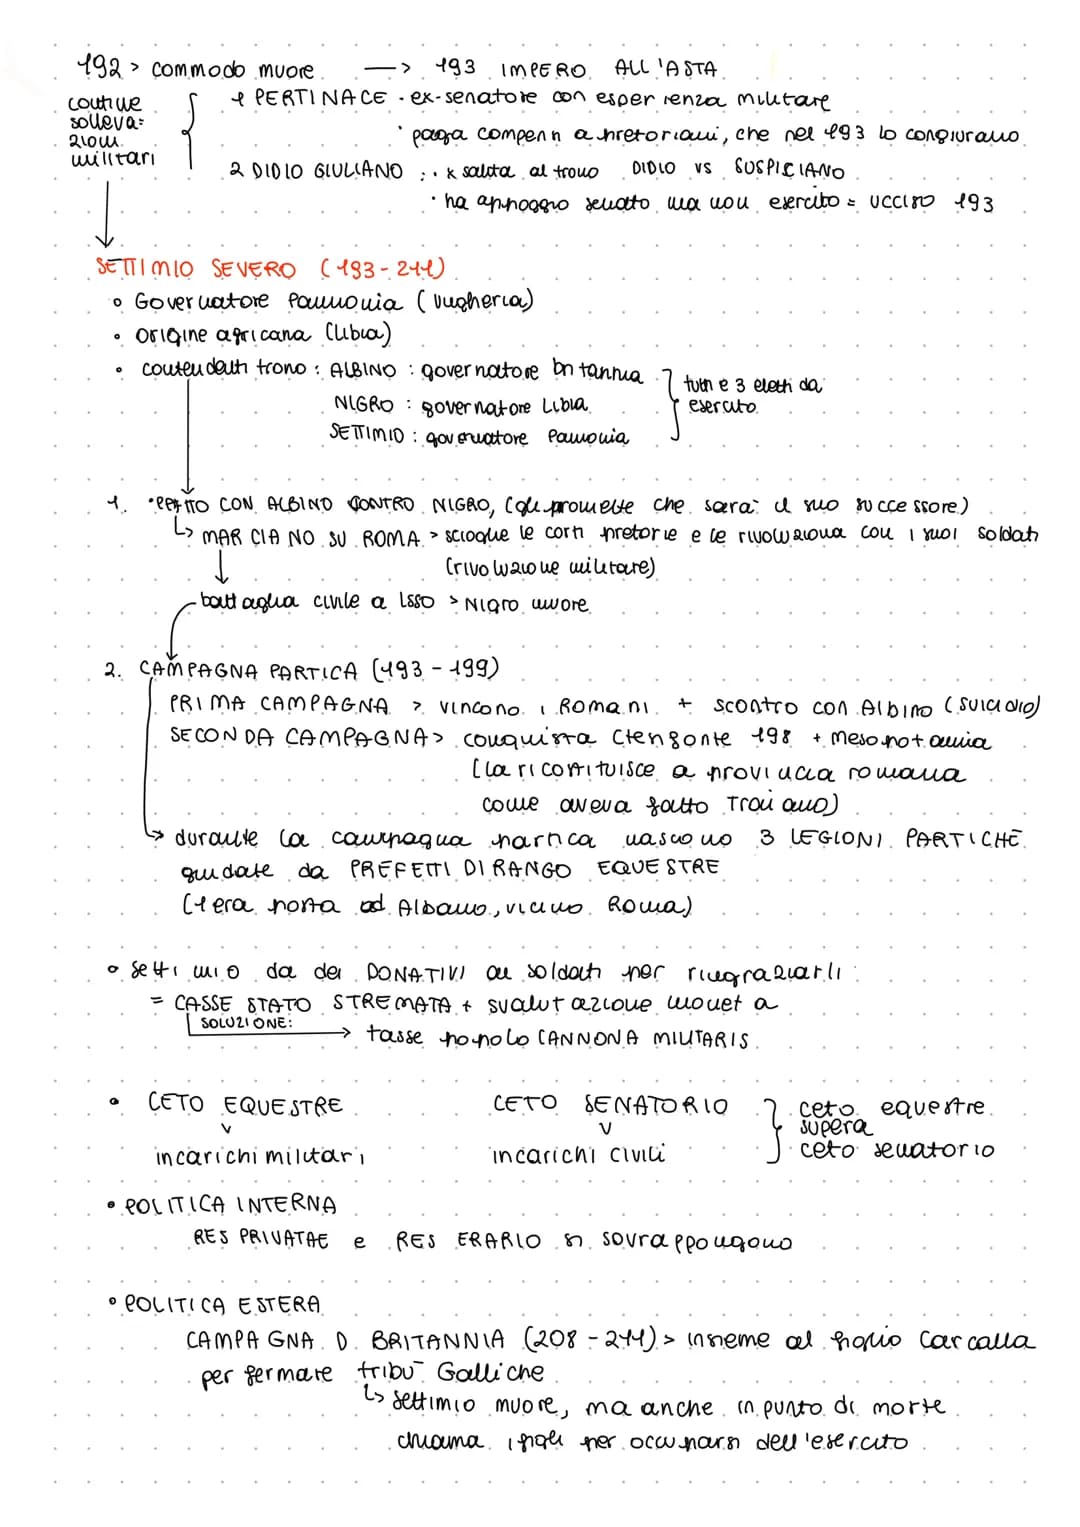 192 > commodo muore → 193 IMPERO ALL'ASTA
continue solleva=
zioni
militari
1 PERTINACE · ex-senatore con esperienza militare
· paga compensi a pretoriani, che nel 193 lo congiurano
2 DIDIO GIULIANO : · x salita al trono DIDIO VS SUSPICIANO
· ha appoggio senato ma non esercito = UCCISO 193
SETTIMIO SEVERO (193-211)
Governatore Pannonia (Ungheria)
origine africana (Libia)
contendenti trono : ALBINO : governatore britannia
NIGRO : governatore Libia
SETTIMIO : governatore Pannonia
tutti e 3 eletti da
esercito
1. PATTO CON ALBINO CONTRO NIGRO, (gli promette che sarà il suo successore)
↳ MARCIANO SU ROMA > scioglie le corti pretorie e le rivoluziona con i suoi soldati
(rivoluzione militare)
battaglia civile a Isso > Nigro muore
2. CAMPAGNA PARTICA (193-199)
PRIMA CAMPAGNA > vincono i Romani + scontro con Albino (suicidio)
SECONDA CAMPAGNA > conquista Ctensfonte 198 + Mesopotamia
(la ricostituisce a provincia romana
come aveva fatto Traiano)
→ durante la campagna partica nascono 3 LEGIONI PARTICHE
guidate da PREFETTI DI RANGO EQUESTRE
(1 era posta ad Albano, vicino Roma)
Settimio da dei DONATIVI ai soldati per ringraziarli :
= CASSE STATO STREMATA + svalutazione moneta
SOLUZIONE: → tasse popolo (ANNONA MILITARIS
CETO EQUESTRE CETO SENATORIO
v v
incarichi militari incarichi civili
ceto equestre
supera
ceto senatorio
• POLITICA INTERNA
RES PRIVATAE e RES ERARIO si sovrappongono
• POLITICA ESTERA
CAMPAGNA D. BRITANNIA (208-211) > insieme al figlio Carcalla
per fermare tribù Galliche
↳ Settimio muore, ma anche in punto di morte
chiama i figli per occuparsi dell'esercito